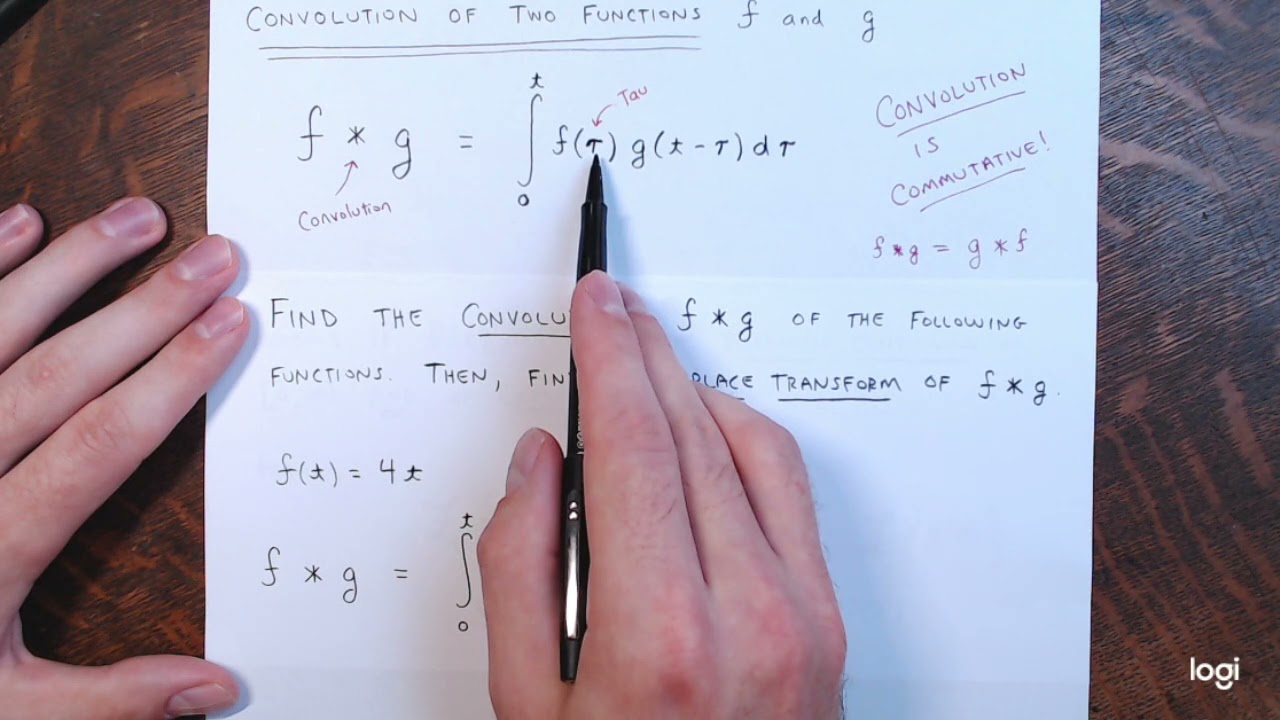 CONVOLUTION OF TWO FUNCTIONS f and g
f * g = ∫₀ᵗ f(τ) g(t - τ) dτ
Tau
Convolution
CONVOLUTION
IS
COMMUTATIVE!
f * g = g * f
FIND THE CONVOLU f * g OF THE FOLLOWING
FUNCTIONS. THEN, FIN PLACE TRANSFORM OF f * g.
f(t) = 4t
f * g = ∫₀ᵗ
logi